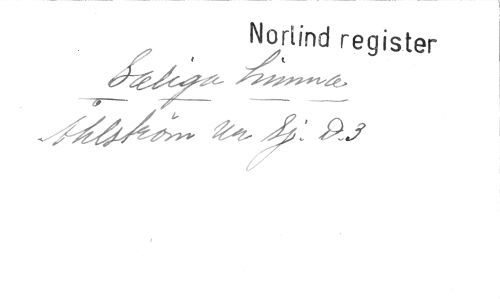 Norlind register
Saliga timma
Åhlström Ur Sj. D.3